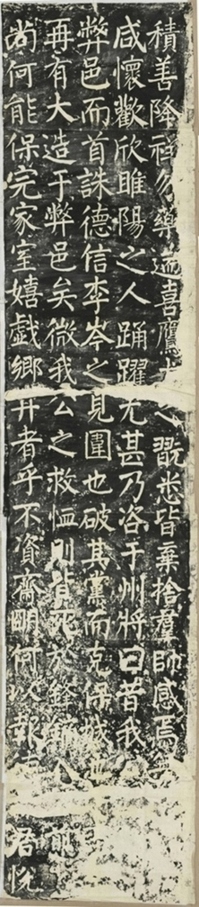 積善降祥勿藥遄喜鷹之翫悉皆棄捨羣師感焉
咸懷歡欣睢陽之人踊躍尤甚乃洛于州將曰昔我
弊邑而首誅德信李岑之見圍也破其黨而克保城
再有大造于弊邑矣微我公之救恤則皆死於鋒
尚何能保完家室嬉戲鄉井者乎不資齋明何以報
前
君悅